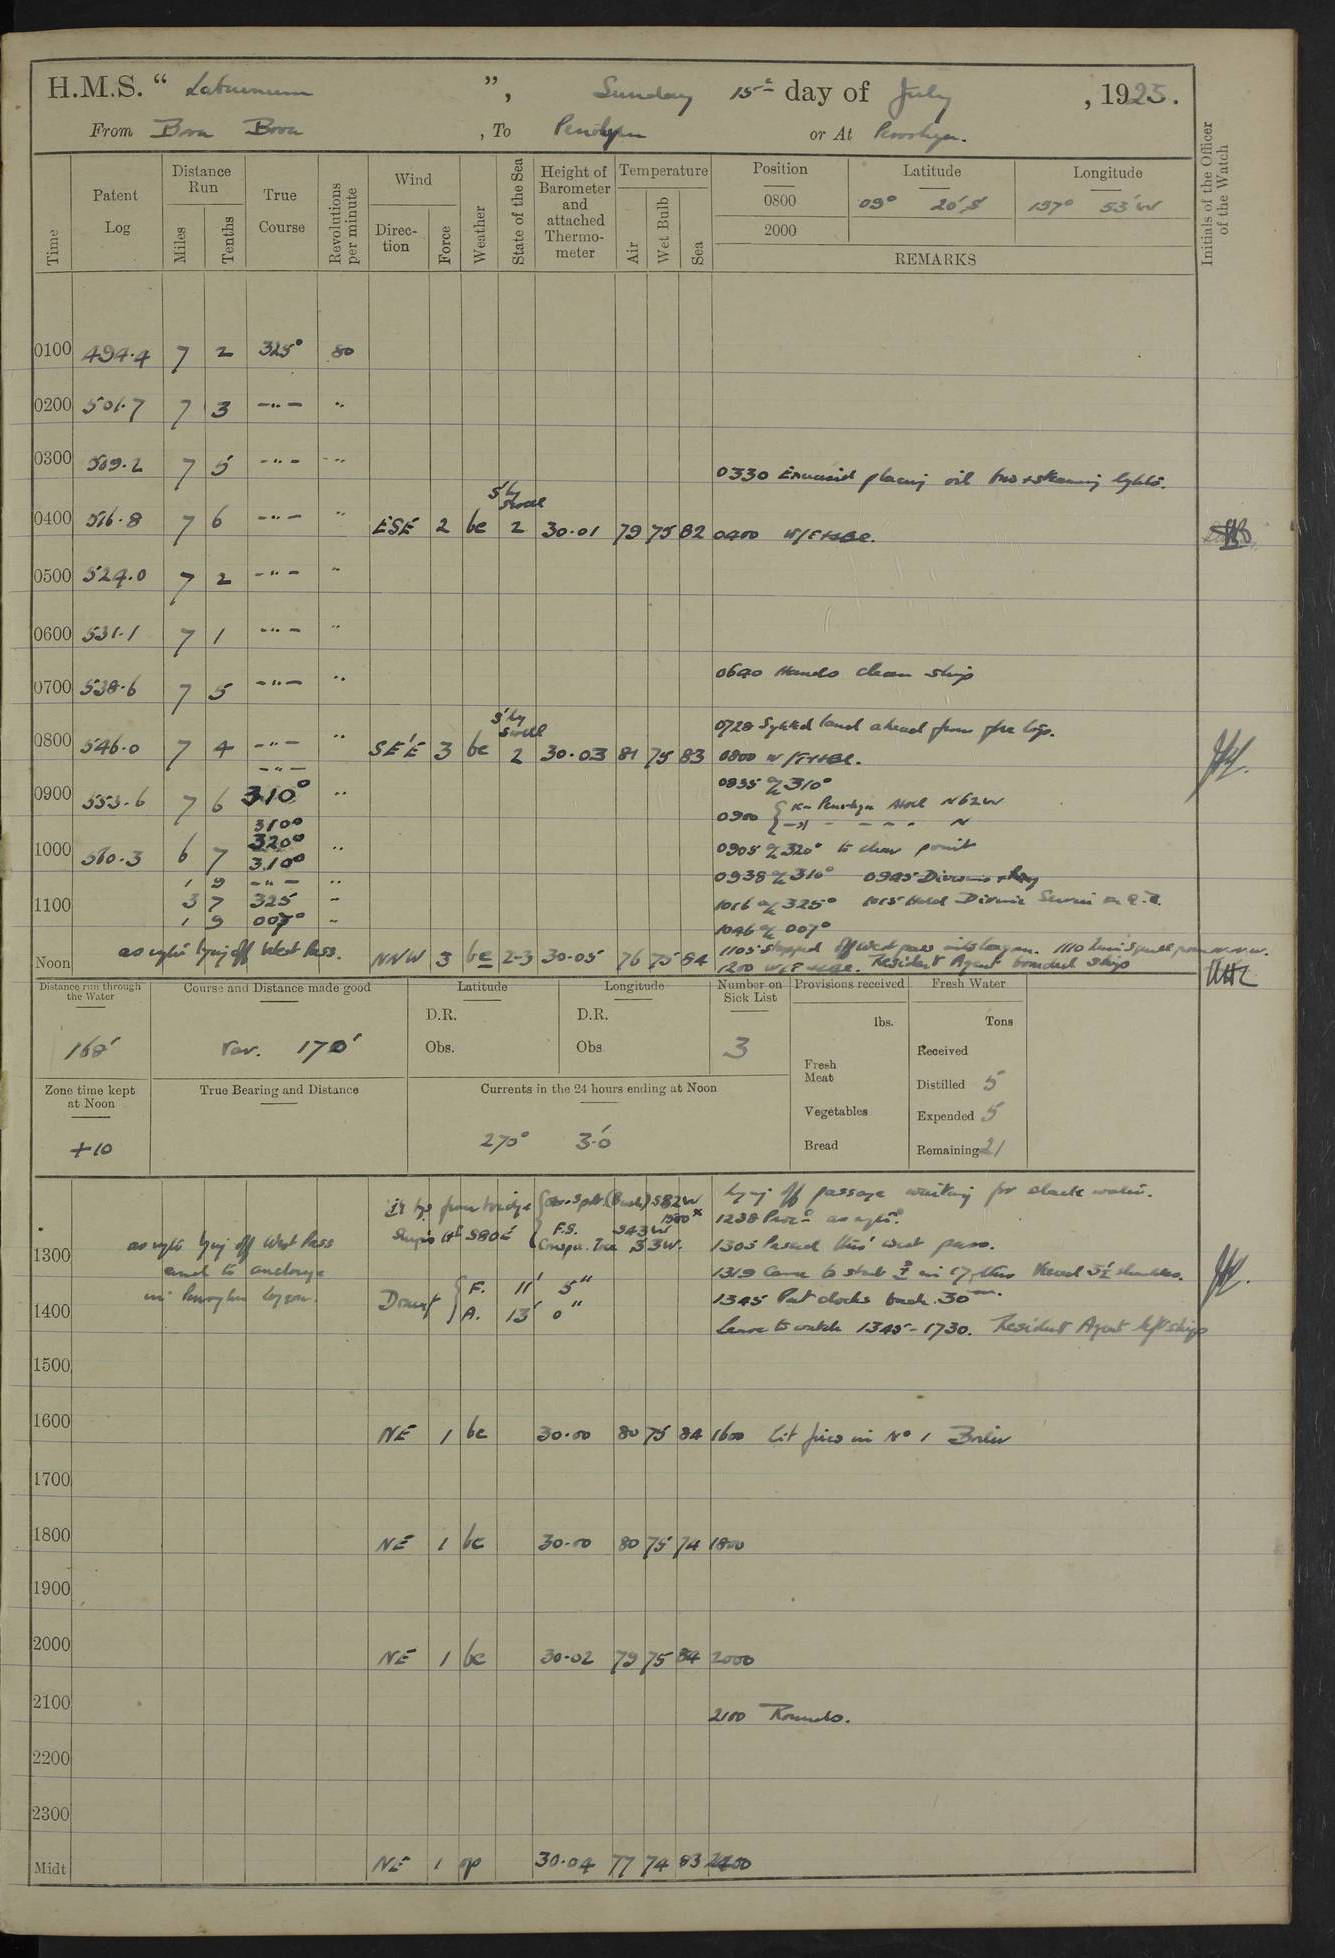 H.M.S. " Laburnum ", Sunday 15th day of July, 1923.
From Bora Bora, To Penrhyn or At Penrhyn.
Time
Patent Log
Distance Run
Miles
Tenths
True Course
Revolutions per minute
Wind
Direction
Force
Weather
State of the Sea
Height of Barometer and attached Thermometer
Temperature
Air
Wet Bulb
Sea
Position
0800
2000
Latitude
09° 20' S
Longitude
157° 53' W
REMARKS
Initials of the Officer of the Watch
0100 494.4 7 2 325° 80
0200 501.7 7 3 -"- "
0300 509.2 7 5 -"- -"
0330 Exercised placing oil bow & steaming lights.
S'ly swell
0400 516.8 7 6 -"- " ESE 2 bc 2 30.01 79 75 82 0400
0500 524.0 7 2 -"- "
0600 531.1 7 1 -"- "
0640 Hands clean ship
0700 538.6 7 5 -"- "
0728 Sighted land ahead from fore top.
S'ly swell
0800 546.0 7 4 -"- " SE'E 3 bc 2 30.03 81 75 83 0800
-"-
0835 a/c 310°
0900 553.6 7 6 310° "
0900 Penrhyn Atoll N62W
310°
320°
0905 a/c 320° to clear point
1000 560.3 6 7 310° "
1 9 -"- "
0938 a/c 310° 0945 Divisions
1100 3 7 325 "
1016 a/c 325° 1015 Held Divine Service on Q.D.
1 9 007° "
1046 a/c 007°
as reqte lying off West Pass.
1105 Stopped off West pass into lagoon. 1110 Squall from N.N.W.
Noon NNW 3 bc 2-3 30.05 76 75 84 1200 Resident Agent boarded ship
Distance run through the Water
168'
Course and Distance made good
Var. 170'
Latitude
D.R.
Obs.
Longitude
D.R.
Obs
Number on Sick List
3
Provisions received
lbs.
Fresh Meat
Vegetables
Bread
Fresh Water
Tons
Received
Distilled 5
Expended 5
Remaining 21
Zone time kept at Noon
+10
True Bearing and Distance
Currents in the 24 hours ending at Noon
270° 3.0'
Lying off passage waiting for slack water.
from bridge
S82W
1238 Proc'd as reqte.
Ship's Hd S80E F.S. S43W
Conspic. Tree S3W.
1300 as reqte lying off West Pass
1305 Passed thro' West pass.
and to anchorage
in Penrhyn lagoon.
1319 Came to
Draught F. 11' 5"
1345 Put clocks back 30 min.
1400 A. 13' 0"
Leave to watch 1345-1730. Resident Agent left ship
1500
1600 NE 1 bc 30.00 80 75 84 1600 Lit fires in No 1 Boiler
1700
1800 NE 1 bc 30.00 80 75 74 1800
1900
2000 NE 1 bc 30.02 79 75 84 2000
2100
2100 Rounds.
2200
2300
Midt NE 1 op 30.04 77 74 83 2400